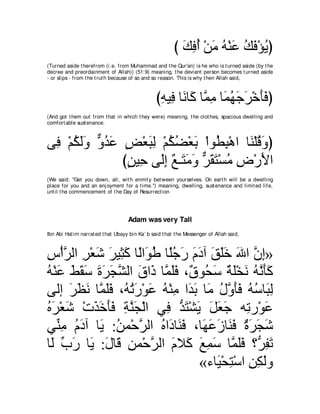 ( يُؤْفَكُ عَنْهُ مَنْ أُفِكَ )
(Turned aside therefrom (i.e. from Muhammad and the Qur'an) is he who is turned aside (by the decree and preordainment of Allah)) (51:9) meaning, the deviant person becomes turned aside - or slips - from the truth because of so and so reason. This is why then Allah said,
(فَأَخْرَجَهُمَا مِمَّا كَانَا فِيهِ)
(And got them out from that in which they were) meaning, the clothes, spacious dwelling and comfortable sustenance.
(وَقُلْنَا اهْبِطُواْ بَعْضُكُمْ لِبَعْضٍ عَدُوٌّ وَلَكُمْ فِى
الأَرْضِ مُسْتَقَرٌّ وَمَتَـعٌ إِلَى حِينٍ)
(We said: "Get you down, all, with enmity between yourselves. On earth will be a dwelling place for you and an enjoyment for a time.") meaning, dwelling, sustenance and limited life, until the commencement of the Day of Resurrection
Adam was very Tall
Ibn Abi Hatim narrated that Ubayy bin Ka`b said that the Messenger of Allah said,
«إِنَّ اللهَ خَلَقَ آدَمَ رَجُلًا طُوَالًا كَثِيرَ شَعْرِ الرَّأْسِ
كَأَنَّهُ نَخْلَةٌ سَحُوقٌ، فَلَمَّا ذَاقَ الشَّجَرَةَ سَقَطَ عَنْهُ
لِبَاسُهُ فَأَوَّلُ مَا بَدَا مِنْهُ عَوْرَتُهُ، فَلَمَّا نَظَرَ إِلَى
عَوْرَتِهِ جَعَلَ يَشْتَدُّ فِي الْجَنَّةِ فَأَخَذَتْ شَعْرَهُ
شَجَرَةٌ فَنَازَعَهَا، فَنَادَاهُ الرَّحْمنُ: يَا آدَمُ مِنِّي
تَفِرُّ؟ فَلَمَّا سَمِعَ كَلَامَ الرَّحْمنِ قَالَ: يَا رَبِّ لَا
وَلَكِنِ اسْتِحْيَاء»